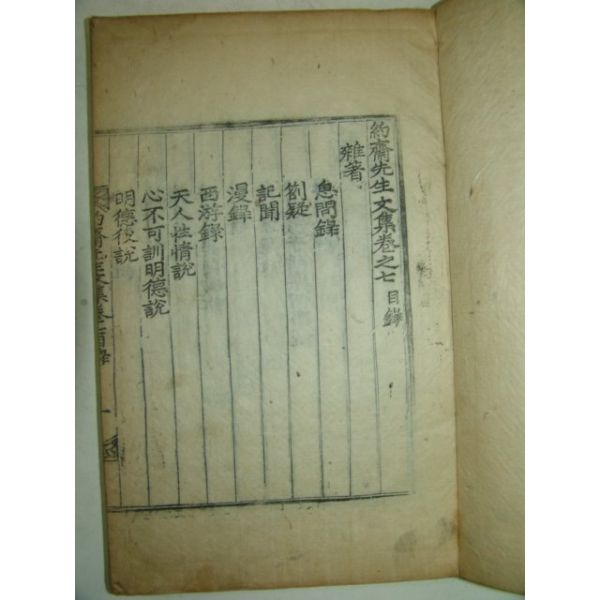 約齋先生文集卷之七 目錄
雜著
急問錄
劄疑
記聞
漫錄
西游錄
天人性情說
心不可訓明德說
明德後說
約齋先生文集卷 目錄 一